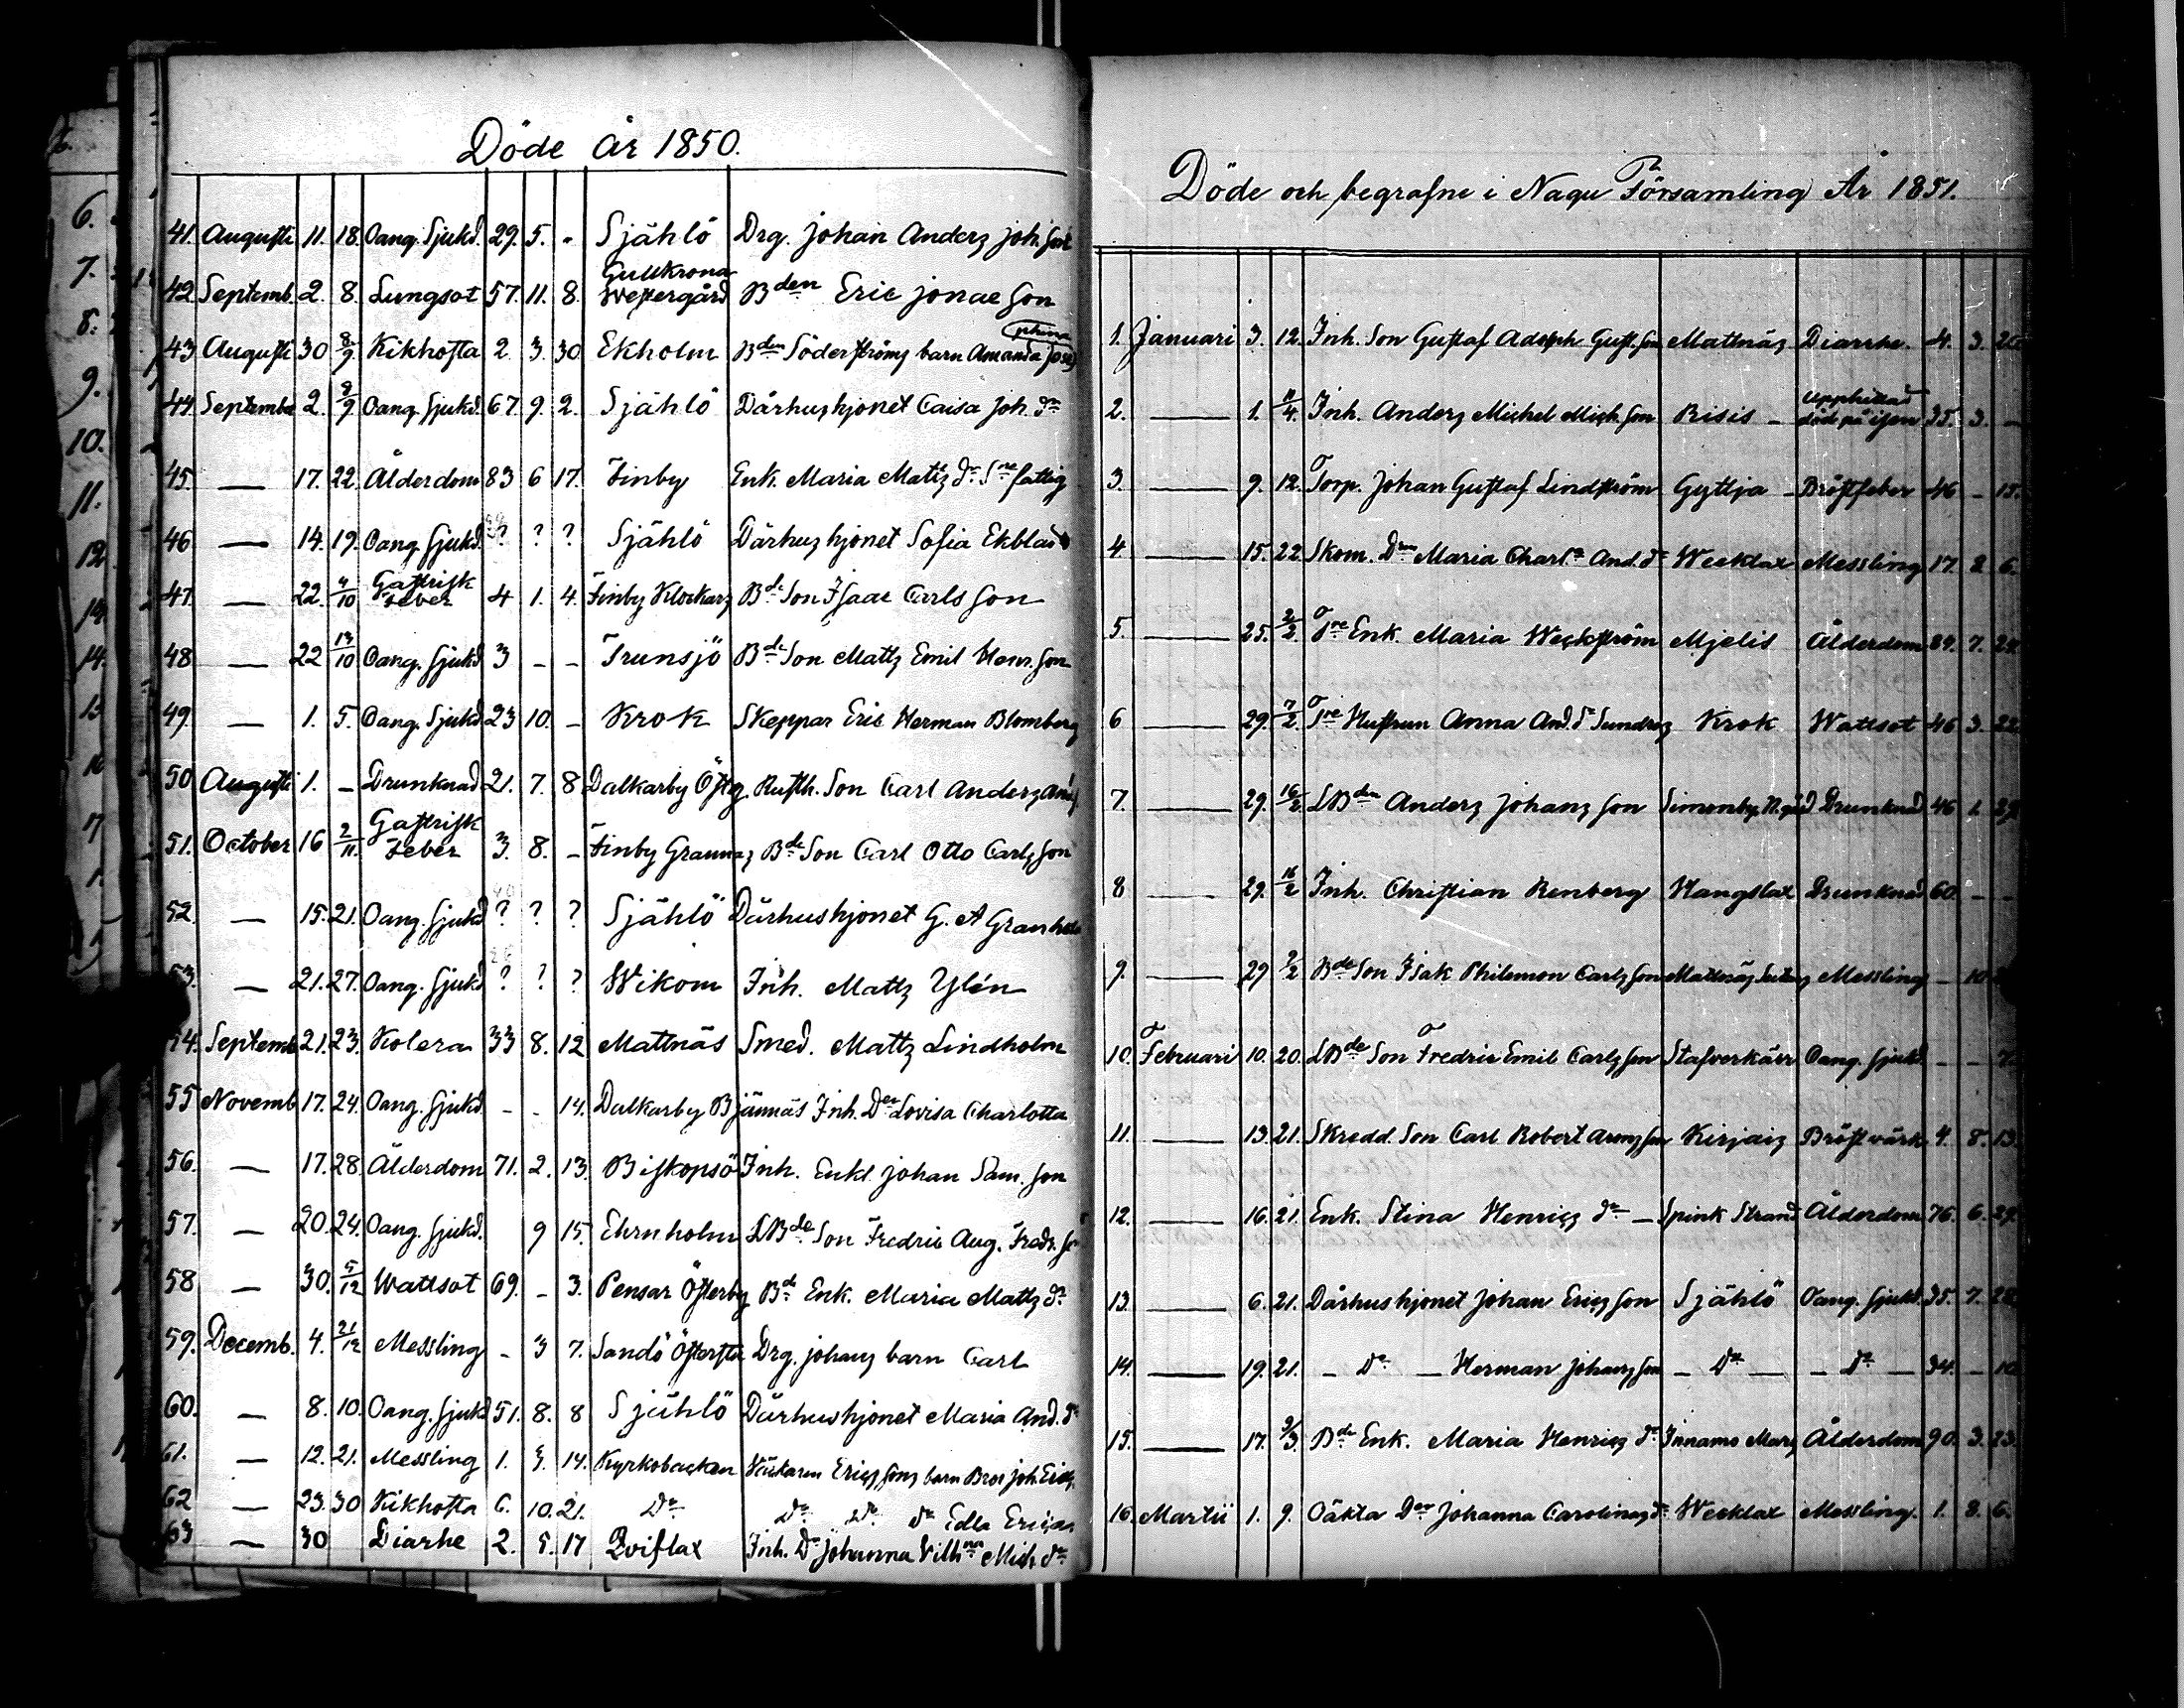 Döde år 1850.
41. Augusti 11. 18. Oang. Sjukd. 29. 5. - Själlö Drg. Johan Anders Joh. Son
Gullkrona
42 Septemb. 2. 8. Lungsot 57. 11. 8. Westergård Bden Eric Jonae Son
43 Augusti 30 8/9 Kikhosta 2. 3. 30 Ekholm Bden Söderströms barn Amanda Josephina
44. Septemb. 2. 8/9 Oang. Sjukd. 67. 9. 2. Själlö Dårhushjonet Caisa Joh. dr
45. — 17. 22. Ålderdom 83 6 17. Finby Enk. Maria Matts dr fattig
46 — 14. 19. Oang. Sjukd. ? ? ? Själlö Dårhushjonet Sofia Ekblad
47. — 22. 4/10 Gastrisk Feber 4 1. 4. Finby Klockars Bde Son Isaac Carls Son
48 — 22 13/10 Oang. Sjukd 3 - - Trunsjö Bde Son Matts Emil Henr. Son
49. — 1. 5. Oang. Sjukd. 23 10. - Krok Skeppar Eric Herman Blomberg
50 Augusti 1. - Drunknad 21. 7. 8 Dalkarby Österg. Rusth. Son Carl Anders
51. October 16 2/11. Gastrisk Feber 3. 8. - Finby Grannas Bde Son Carl Otto Carls Son
52. — 15. 21. Oang. Sjukd ? ? ? Själlö Dårhushjonet G. A
53. — 21. 27. Oang. Sjukd ? ? ? Wikom Inh. Matts Ylén
54. Septemb 21. 23. Kolera 33 8. 12 Mattnäs Smed. Matts Lindholm
55 Novemb 17. 24. Oang. Sjukd. - - 14. Dalkarby Bjännäs Inh. Dr Lovisa Charlotta
56. — 17. 28. Ålderdom 71. 2. 13. Biskopsö Inh. Enkl. Johan Sam. Son
57. — 20. 24. Oang. Sjukd. 9 15. Ehrnholm LBde Son Fredric Aug. Fredr. Son
58 — 30. 5/12 Wattsot 69. - 3. Pensar Österby Bde Enk. Maria Matts dr
59. Decemb. 4. 21/12 Messling - 3 7. Sandö Drg. Johans barn Carl
60. — 8. 10. Oang. Sjukd 51. 8. 8 Själlö Dårhushjonet Maria And. dr
61. — 12. 21. Messling 1. 3. 14. Kyrkobacken Ericssons barn Bror Joh.
62 — 23. 30 Kikhosta 6. 10. 21. Do Do Do Do Edla
63 — 30 Diarhe 2. 5. 17 Qviflax Inh. Dr Johanna Vilhna Mich dr
Döde och begrafne i Nagu Församling År 1851.
1. Januari 3. 12. Inh. Son Gustaf Adolph Gust. Son Mattnäs Diarrhe. 4. 3. 20
2. — 1. 11/4. Inh. Anders Michel Mich. Son Risis - upphittad död på isen 35. 3. -
3. — 9. 12. Torp. Johan Gustaf Lindström Gyttja - Bröstfeber 46 - 15.
4 — 15. 22 Skom. Dr Maria Charlta And. dr Wecklax Messling 17. 2. 6.
5. — 25. 2/2. Enk. Maria Weckström Mjelis Ålderdom 7.
6 — 29. 7/2. Hustrun Anna And. dr Krok Wattsot 46 3. 22
7. — 29. 16/2 LBden Anders Johans Son Simonby Drunknad 46 1. 29.
8 — 29. 16/2 Inh. Christian Renberg Hangslax Drunknad 60. - -
9. — 29 9/2 Bde Son Isak Philemon Carls Son Mattnäs Messling - 10
10. Februari 10. 20. LBde Son Fredric Emil Carls Son Stafverkärr Oang. Sjukd - - 7.
11. — 13. 21. Skredd. Son Carl Robert Son Kirjais Bröstvärk 4. 8. 13.
12. — 16. 21. Enk. Stina Henrics dr — Spink Strand Ålderdom 76. 6. 29.
13. — 6. 21. Dårhushjonet Johan Erics Son Själlö Oang. Sjukd. 35. 7. 28
14. — 19. 21. - Do - Herman Johans Son - Do - - Do - 34. - 10
15. — 17. 9/3. Bde Enk. Maria Henrics dr Innamo Ålderdom 90. 3. 23.
16. Martii 1. 9. Oäkta Dr Johanna Carolina dr Wecklax Messling. 1. 8. 6.